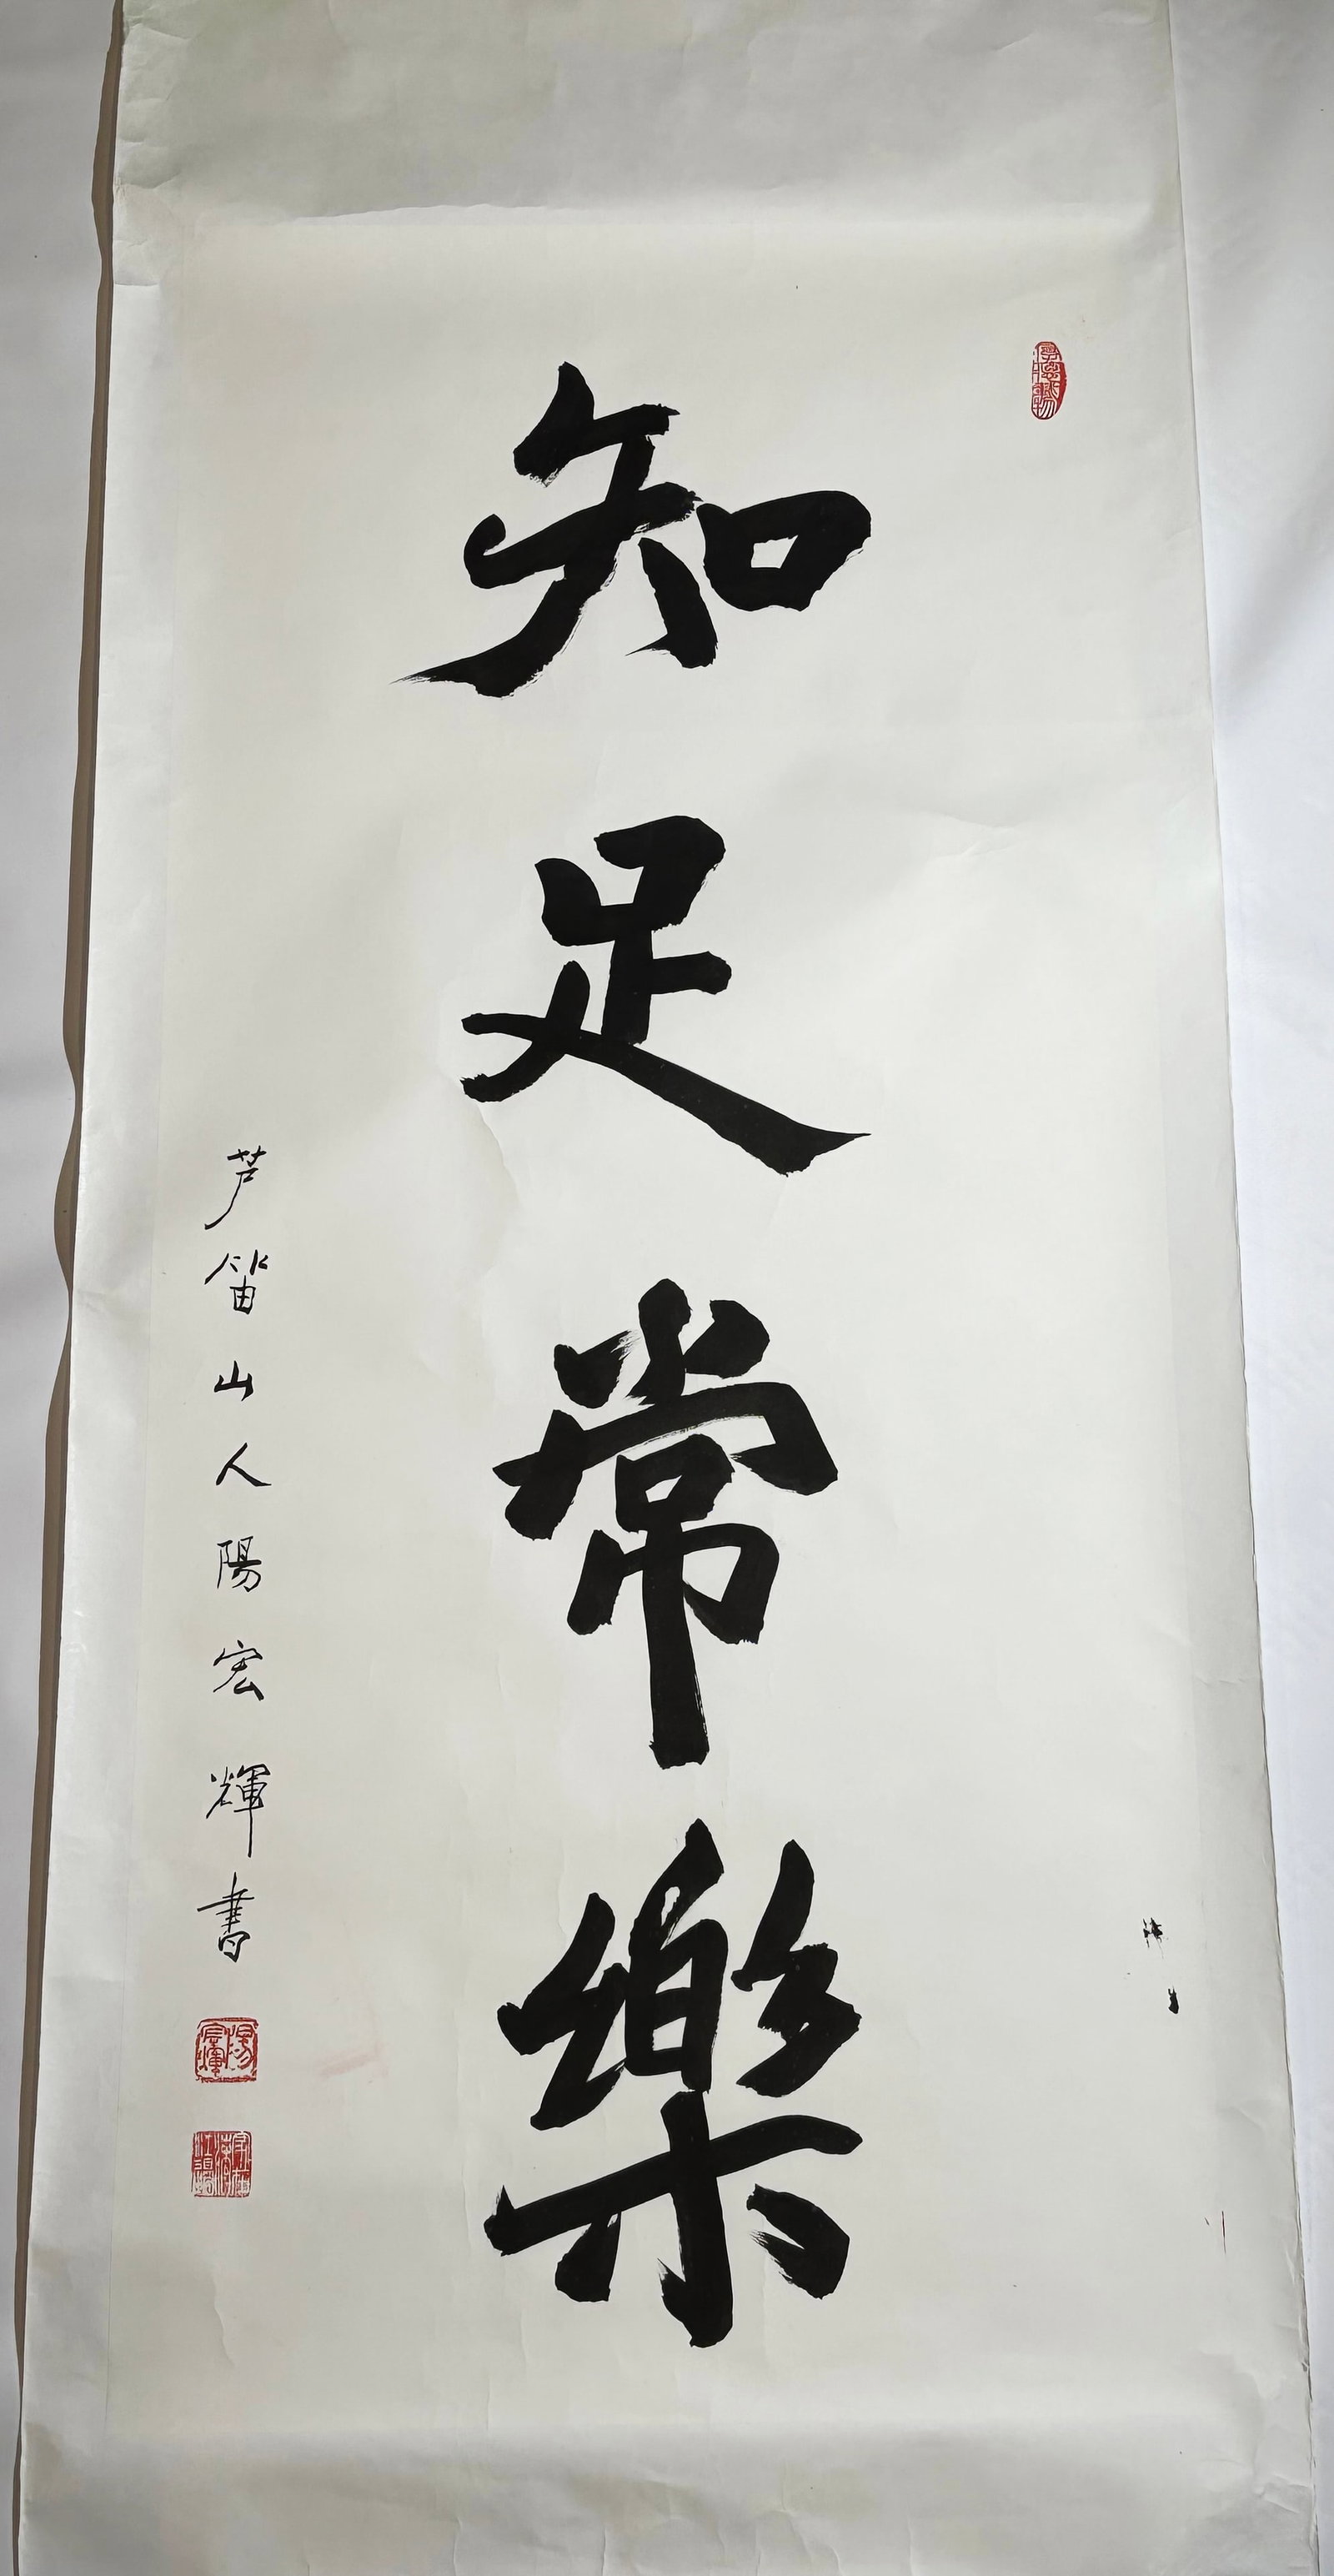 知足常樂
芦笛山人陽宏輝書